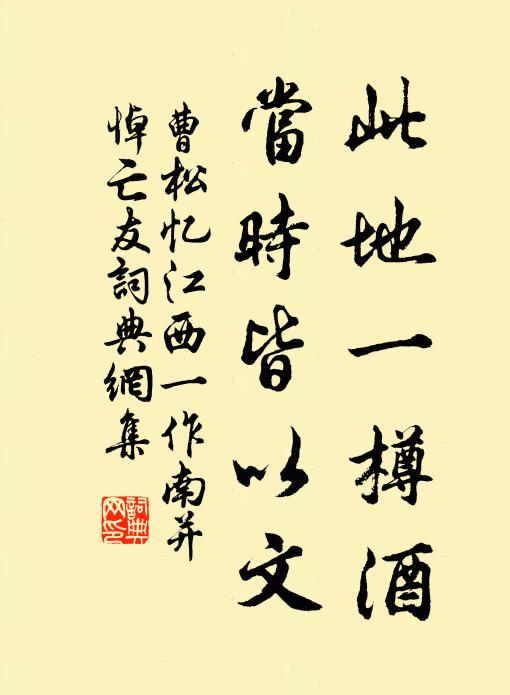 此地一樽酒
當時皆以文
曹松忆江西一作南并
悼亡友詞典網集
詞典
网印